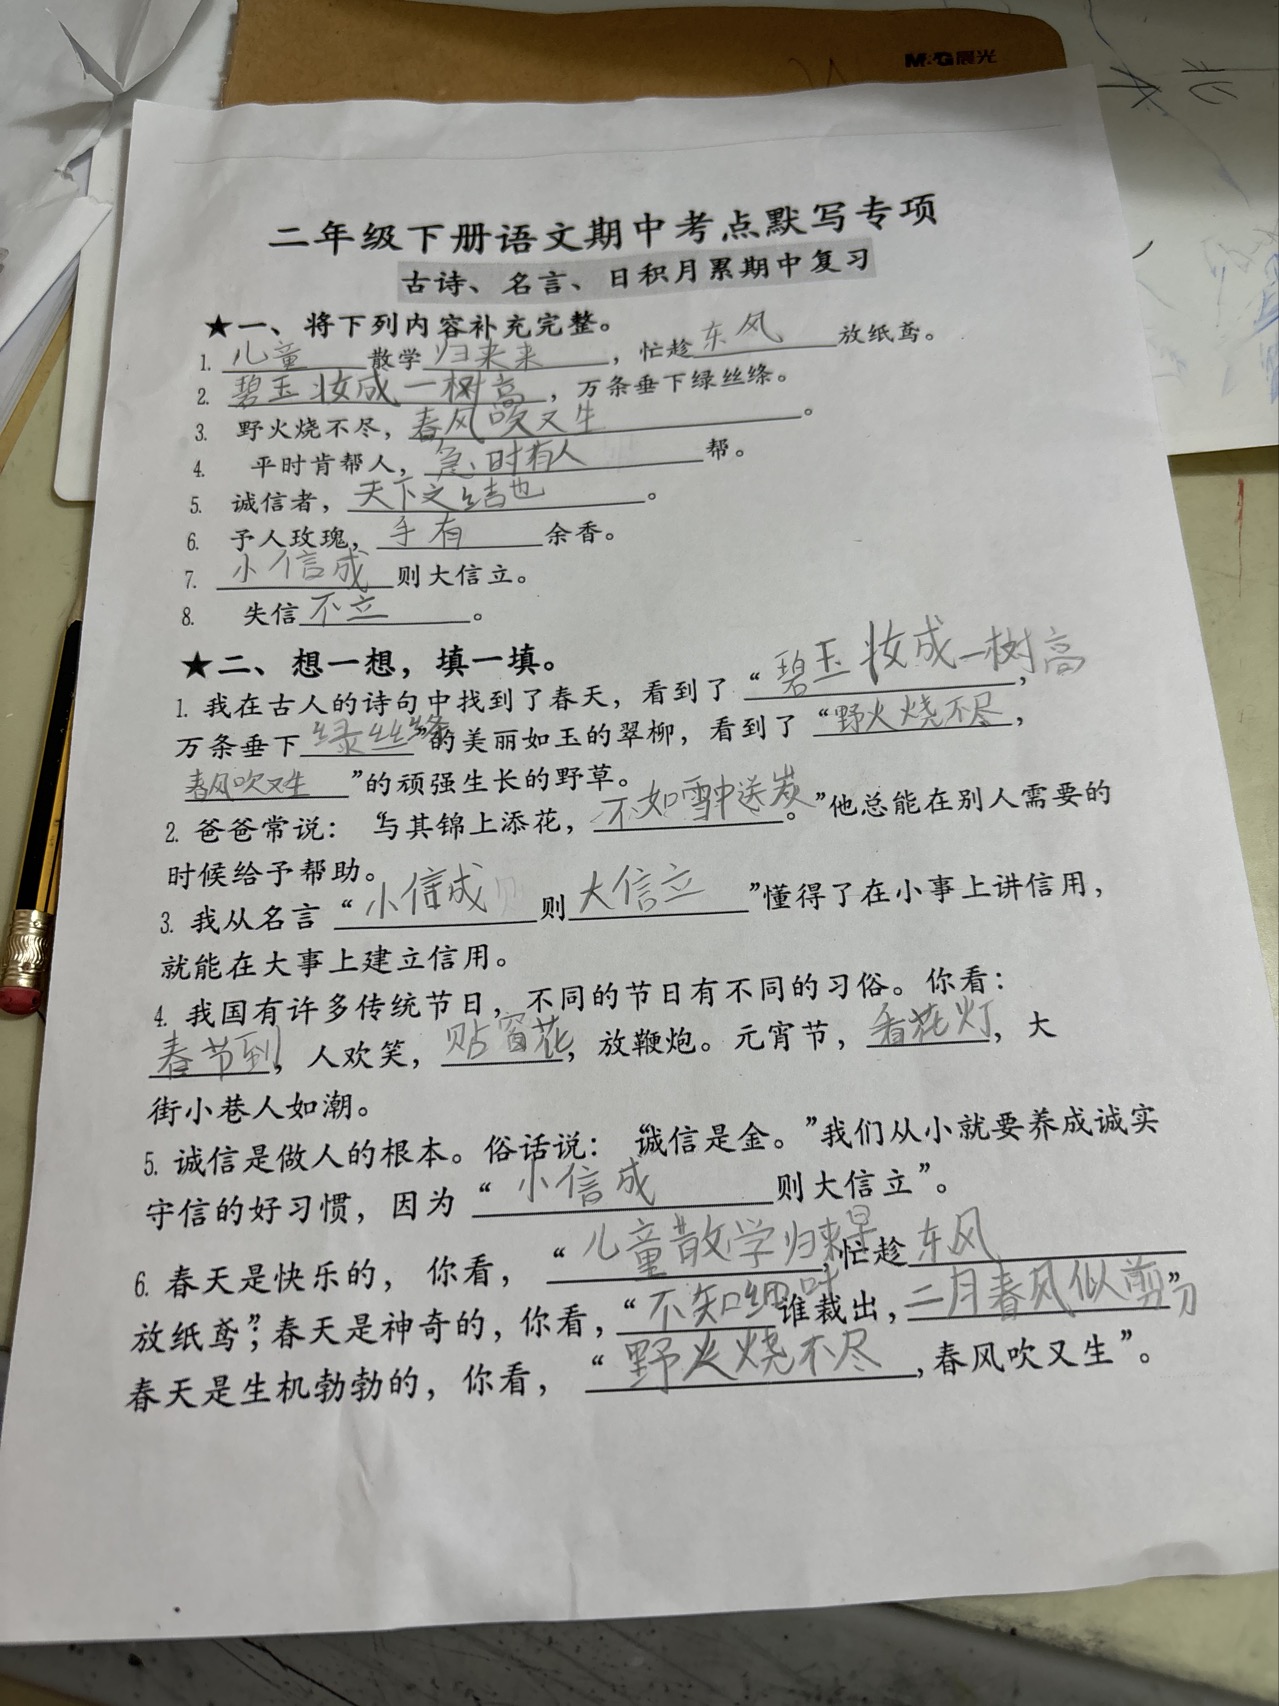 M&G晨光
北
二年级下册语文期中考点默写专项
古诗、名言、日积月累期中复习
★一、将下列内容补充完整。
1. 儿童散学归来来，忙趁东风放纸鸢。
2. 碧玉妆成一树高，万条垂下绿丝绦。
3. 野火烧不尽，春风吹又生。
4. 平时肯帮人，急时有人帮。
5. 诚信者，天下之结也。
6. 予人玫瑰，手有余香。
7. 小信成则大信立。
8. 失信不立。
★二、想一想，填一填。
1. 我在古人的诗句中找到了春天，看到了“碧玉妆成一树高，
万条垂下绿丝绦”的美丽如玉的翠柳，看到了“野火烧不尽，
春风吹又生”的顽强生长的野草。
2. 爸爸常说：“与其锦上添花，不如雪中送炭。”他总能在别人需要的
时候给予帮助。
3. 我从名言“小信成则大信立”懂得了在小事上讲信用，
就能在大事上建立信用。
4. 我国有许多传统节日，不同的节日有不同的习俗。你看：
春节到，人欢笑，贴窗花，放鞭炮。元宵节，看花灯，大
街小巷人如潮。
5. 诚信是做人的根本。俗话说：“诚信是金。”我们从小就要养成诚实
守信的好习惯，因为“小信成则大信立”。
6. 春天是快乐的，你看，“儿童散学归来早，忙趁东风
放纸鸢”；春天是神奇的，你看，“不知细叶谁裁出，二月春风似剪刀”
春天是生机勃勃的，你看，“野火烧不尽，春风吹又生”。